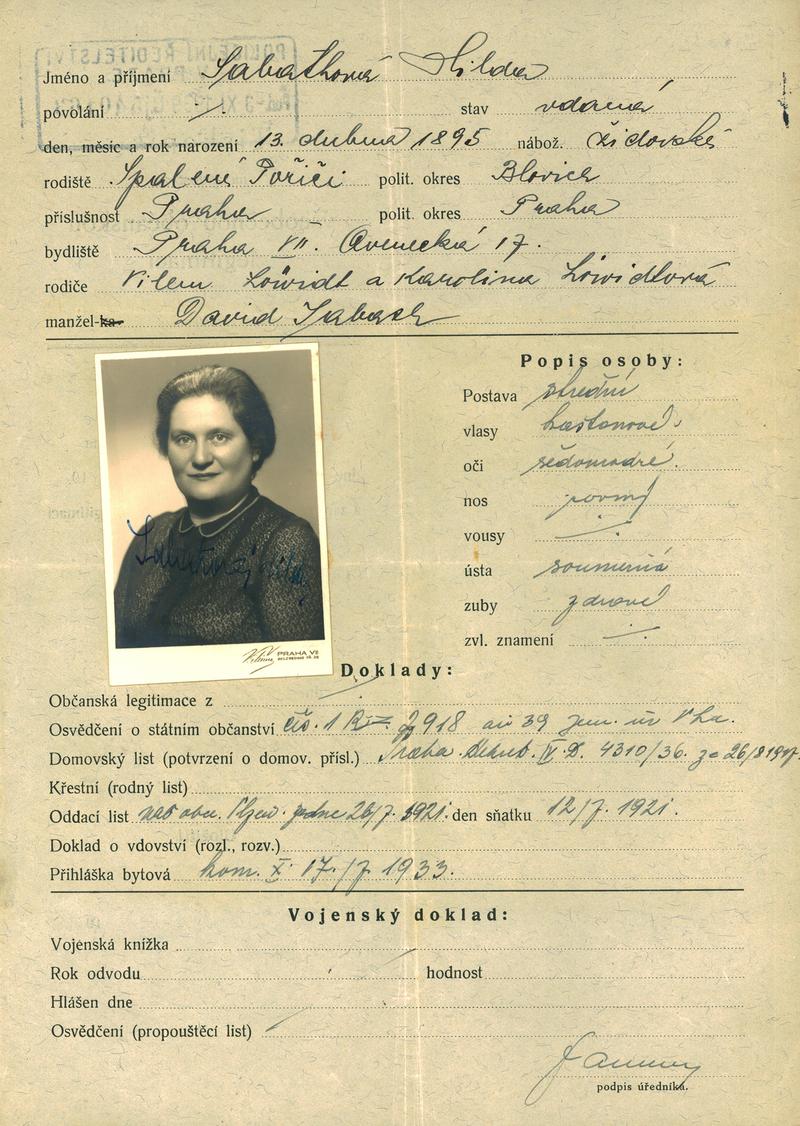 Jméno a příjmení Sabathová Hilda
povolání ./. stav vdaná
den, měsíc a rok narození 13. dubna 1895 nábož. židovské
rodiště Spálené Poříčí polit. okres Blovice
příslušnost Praha polit. okres Praha
bydliště Praha VII. Ovenecká 17.
rodiče Vilem Löwidt a Karolina Löwidtová
manžel-ka David Sabath
Popis osoby:
Postava střední
vlasy kaštanové
oči šedomodré
nos rovný
vousy ./.
ústa souměrná
zuby zdravé
zvl. znamení ./.
PRAHA VII
Doklady:
Občanská legitimace z
Osvědčení o státním občanství čís. 2918 39
Domovský list (potvrzení o domov. přísl.) Praha IV. D. 4310/36. 26/8
Křestní (rodný list)
Oddací list Plzeň 26/7. 1921. den sňatku 12/7. 1921.
Doklad o vdovství (rozl., rozv.)
Přihláška bytová kom. X. 17./7. 1933.
Vojenský doklad:
Vojenská knížka
Rok odvodu hodnost
Hlášen dne
Osvědčení (propouštěcí list)
podpis úředníka.